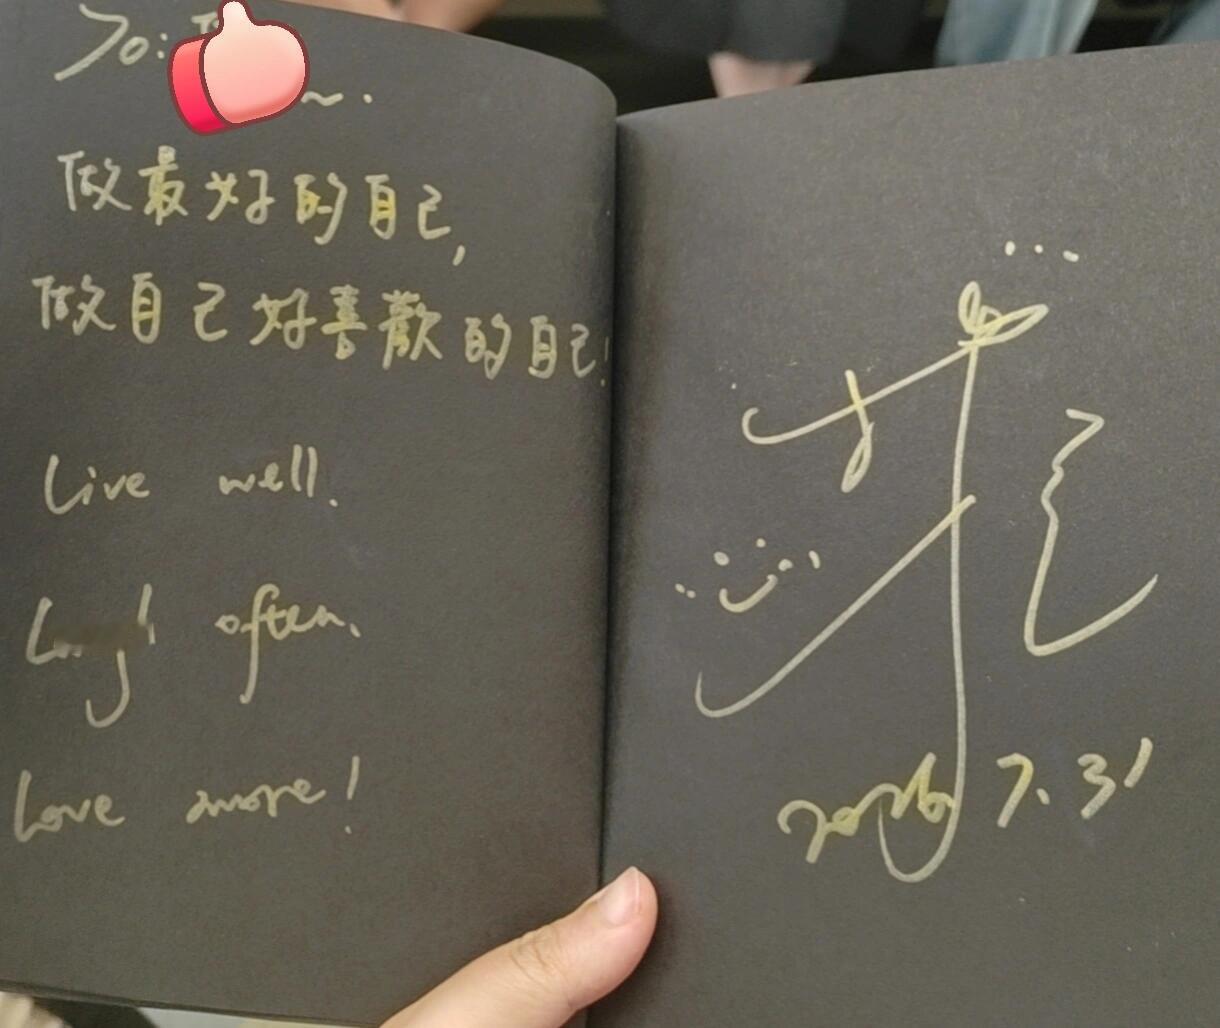 To:
做最好的自己,
做自己好喜歡的自己!
Live well.
Laugh often.
Love more!
2026 7.31